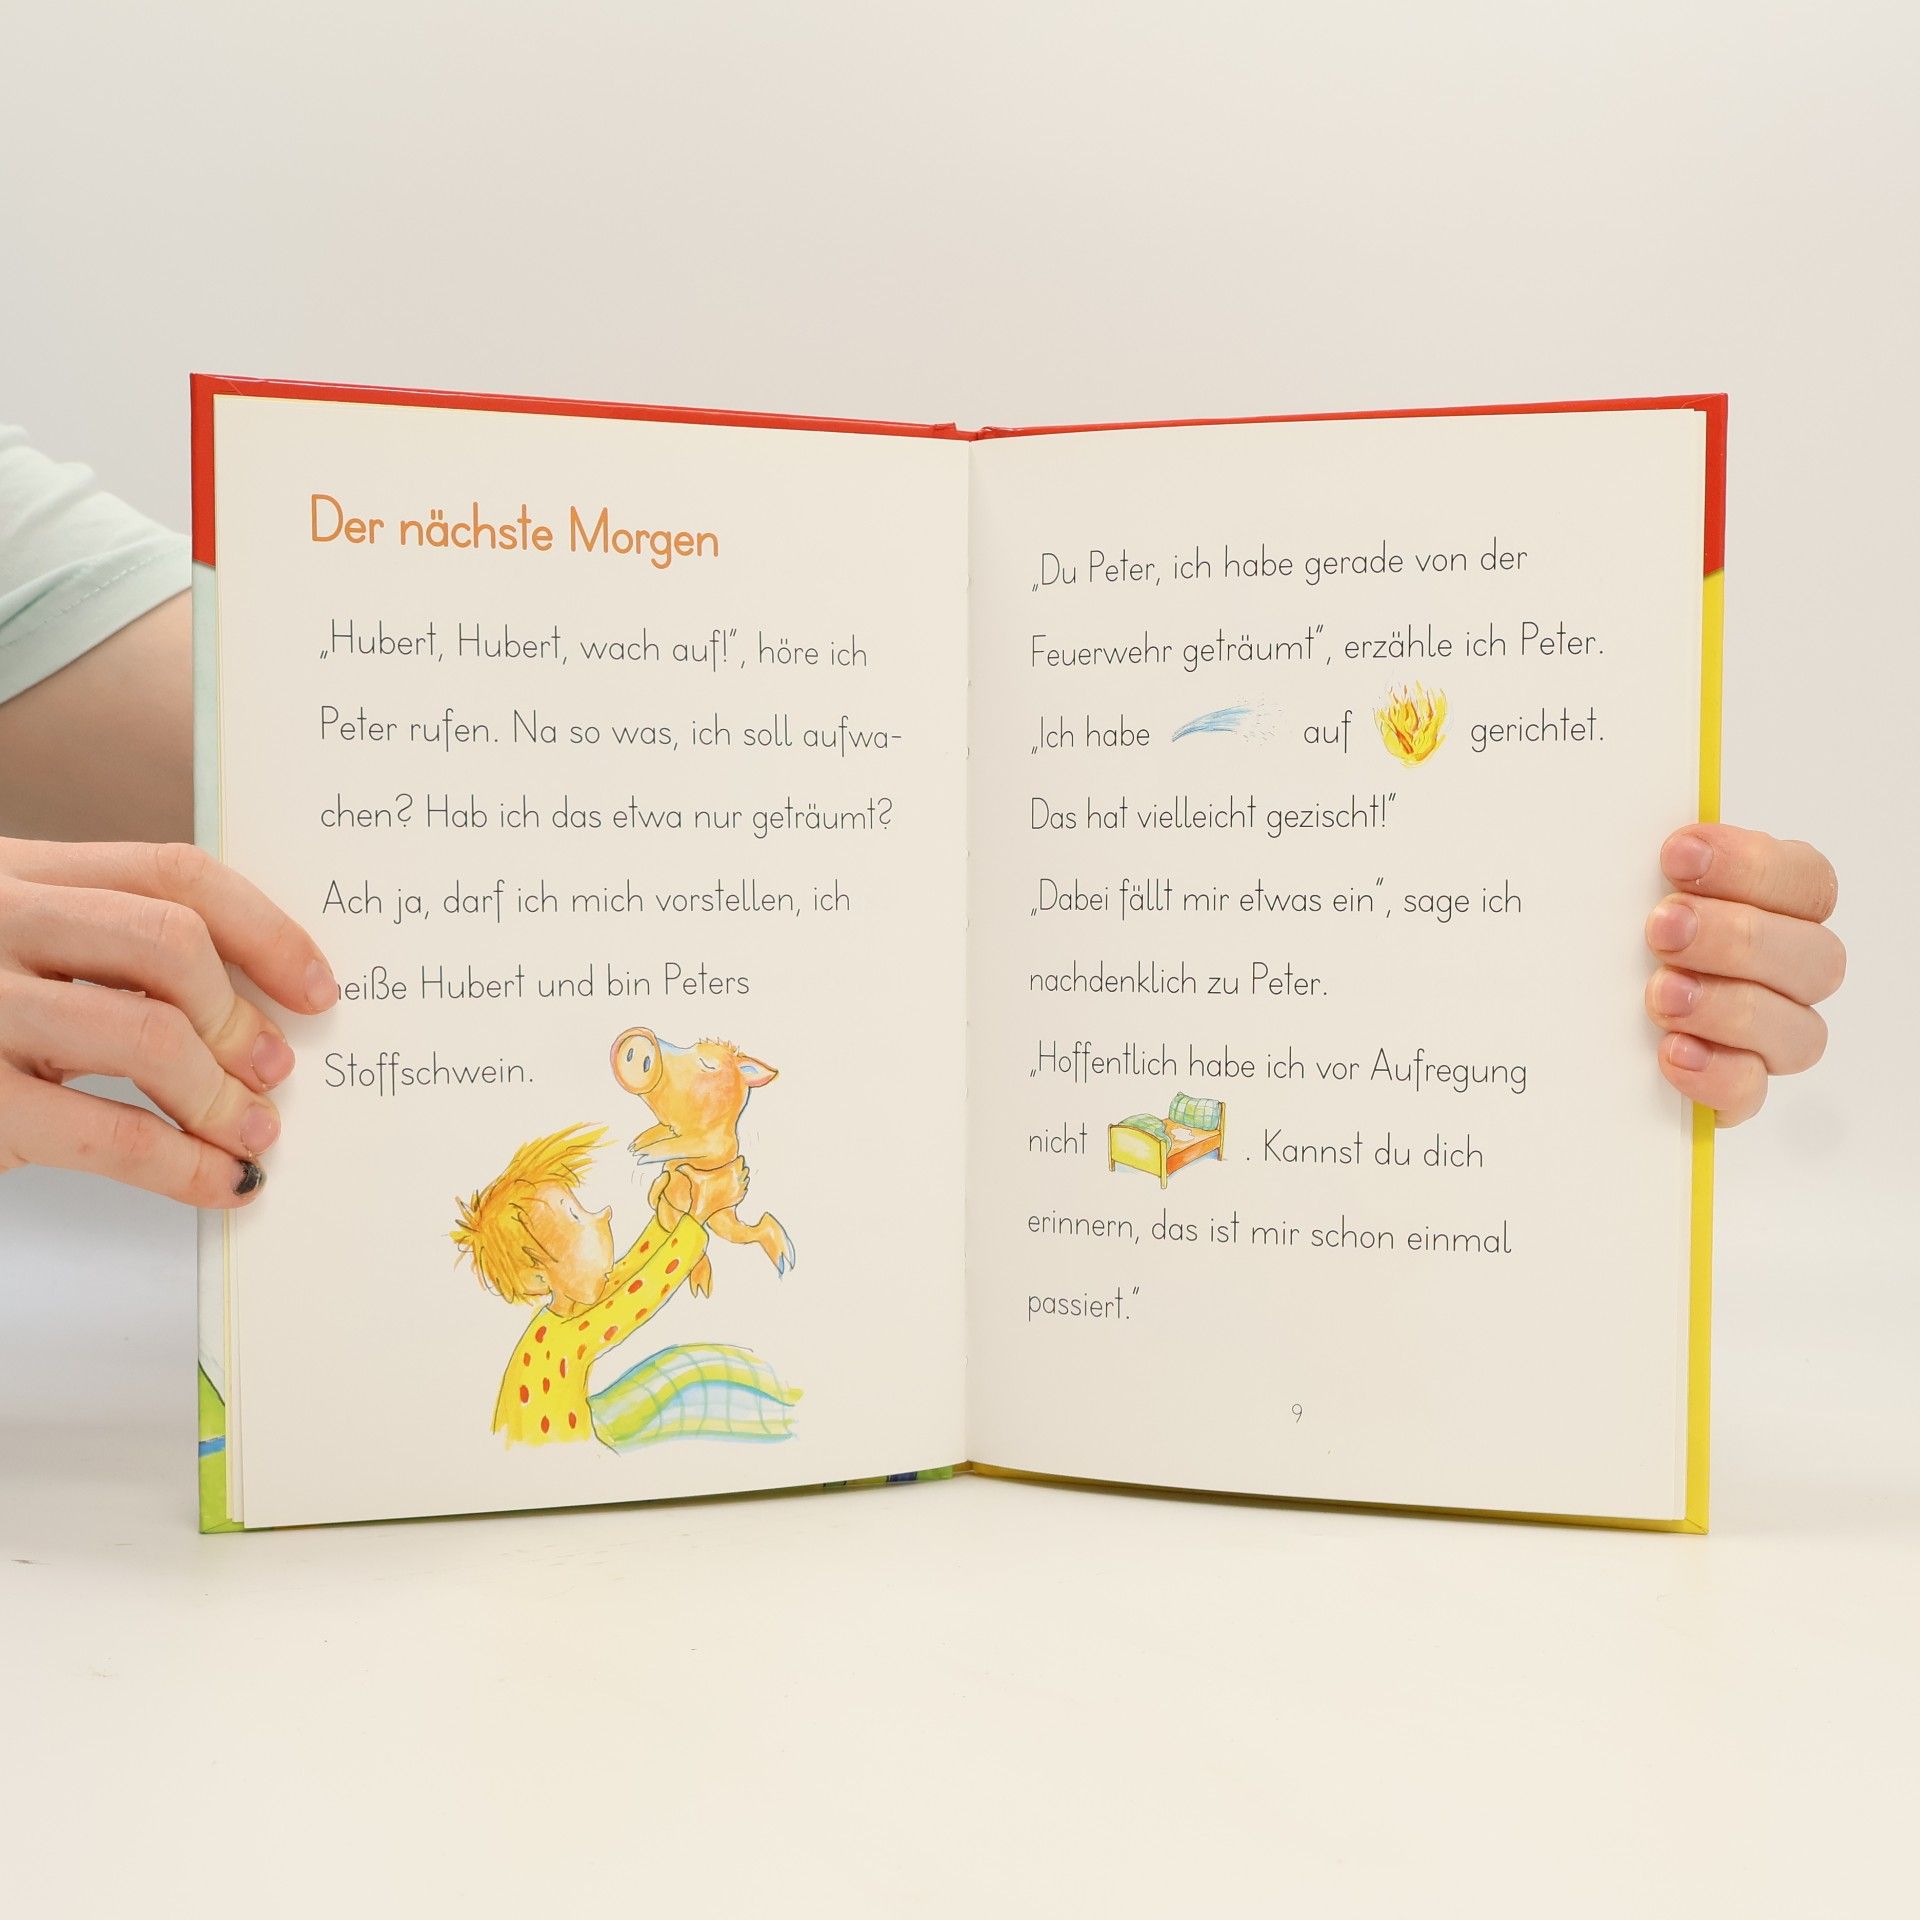 Der nächste Morgen
„Hubert, Hubert, wach auf!", höre ich
Peter rufen. Na so was, ich soll aufwa-
chen? Hab ich das etwa nur geträumt?
Ach ja, darf ich mich vorstellen, ich
heiße Hubert und bin Peters
Stoffschwein.
„Du Peter, ich habe gerade von der
Feuerwehr geträumt", erzähle ich Peter.
„Ich habe auf gerichtet.
Das hat vielleicht gezischt!"
„Dabei fällt mir etwas ein", sage ich
nachdenklich zu Peter.
„Hoffentlich habe ich vor Aufregung
nicht . Kannst du dich
erinnern, das ist mir schon einmal
passiert."
9